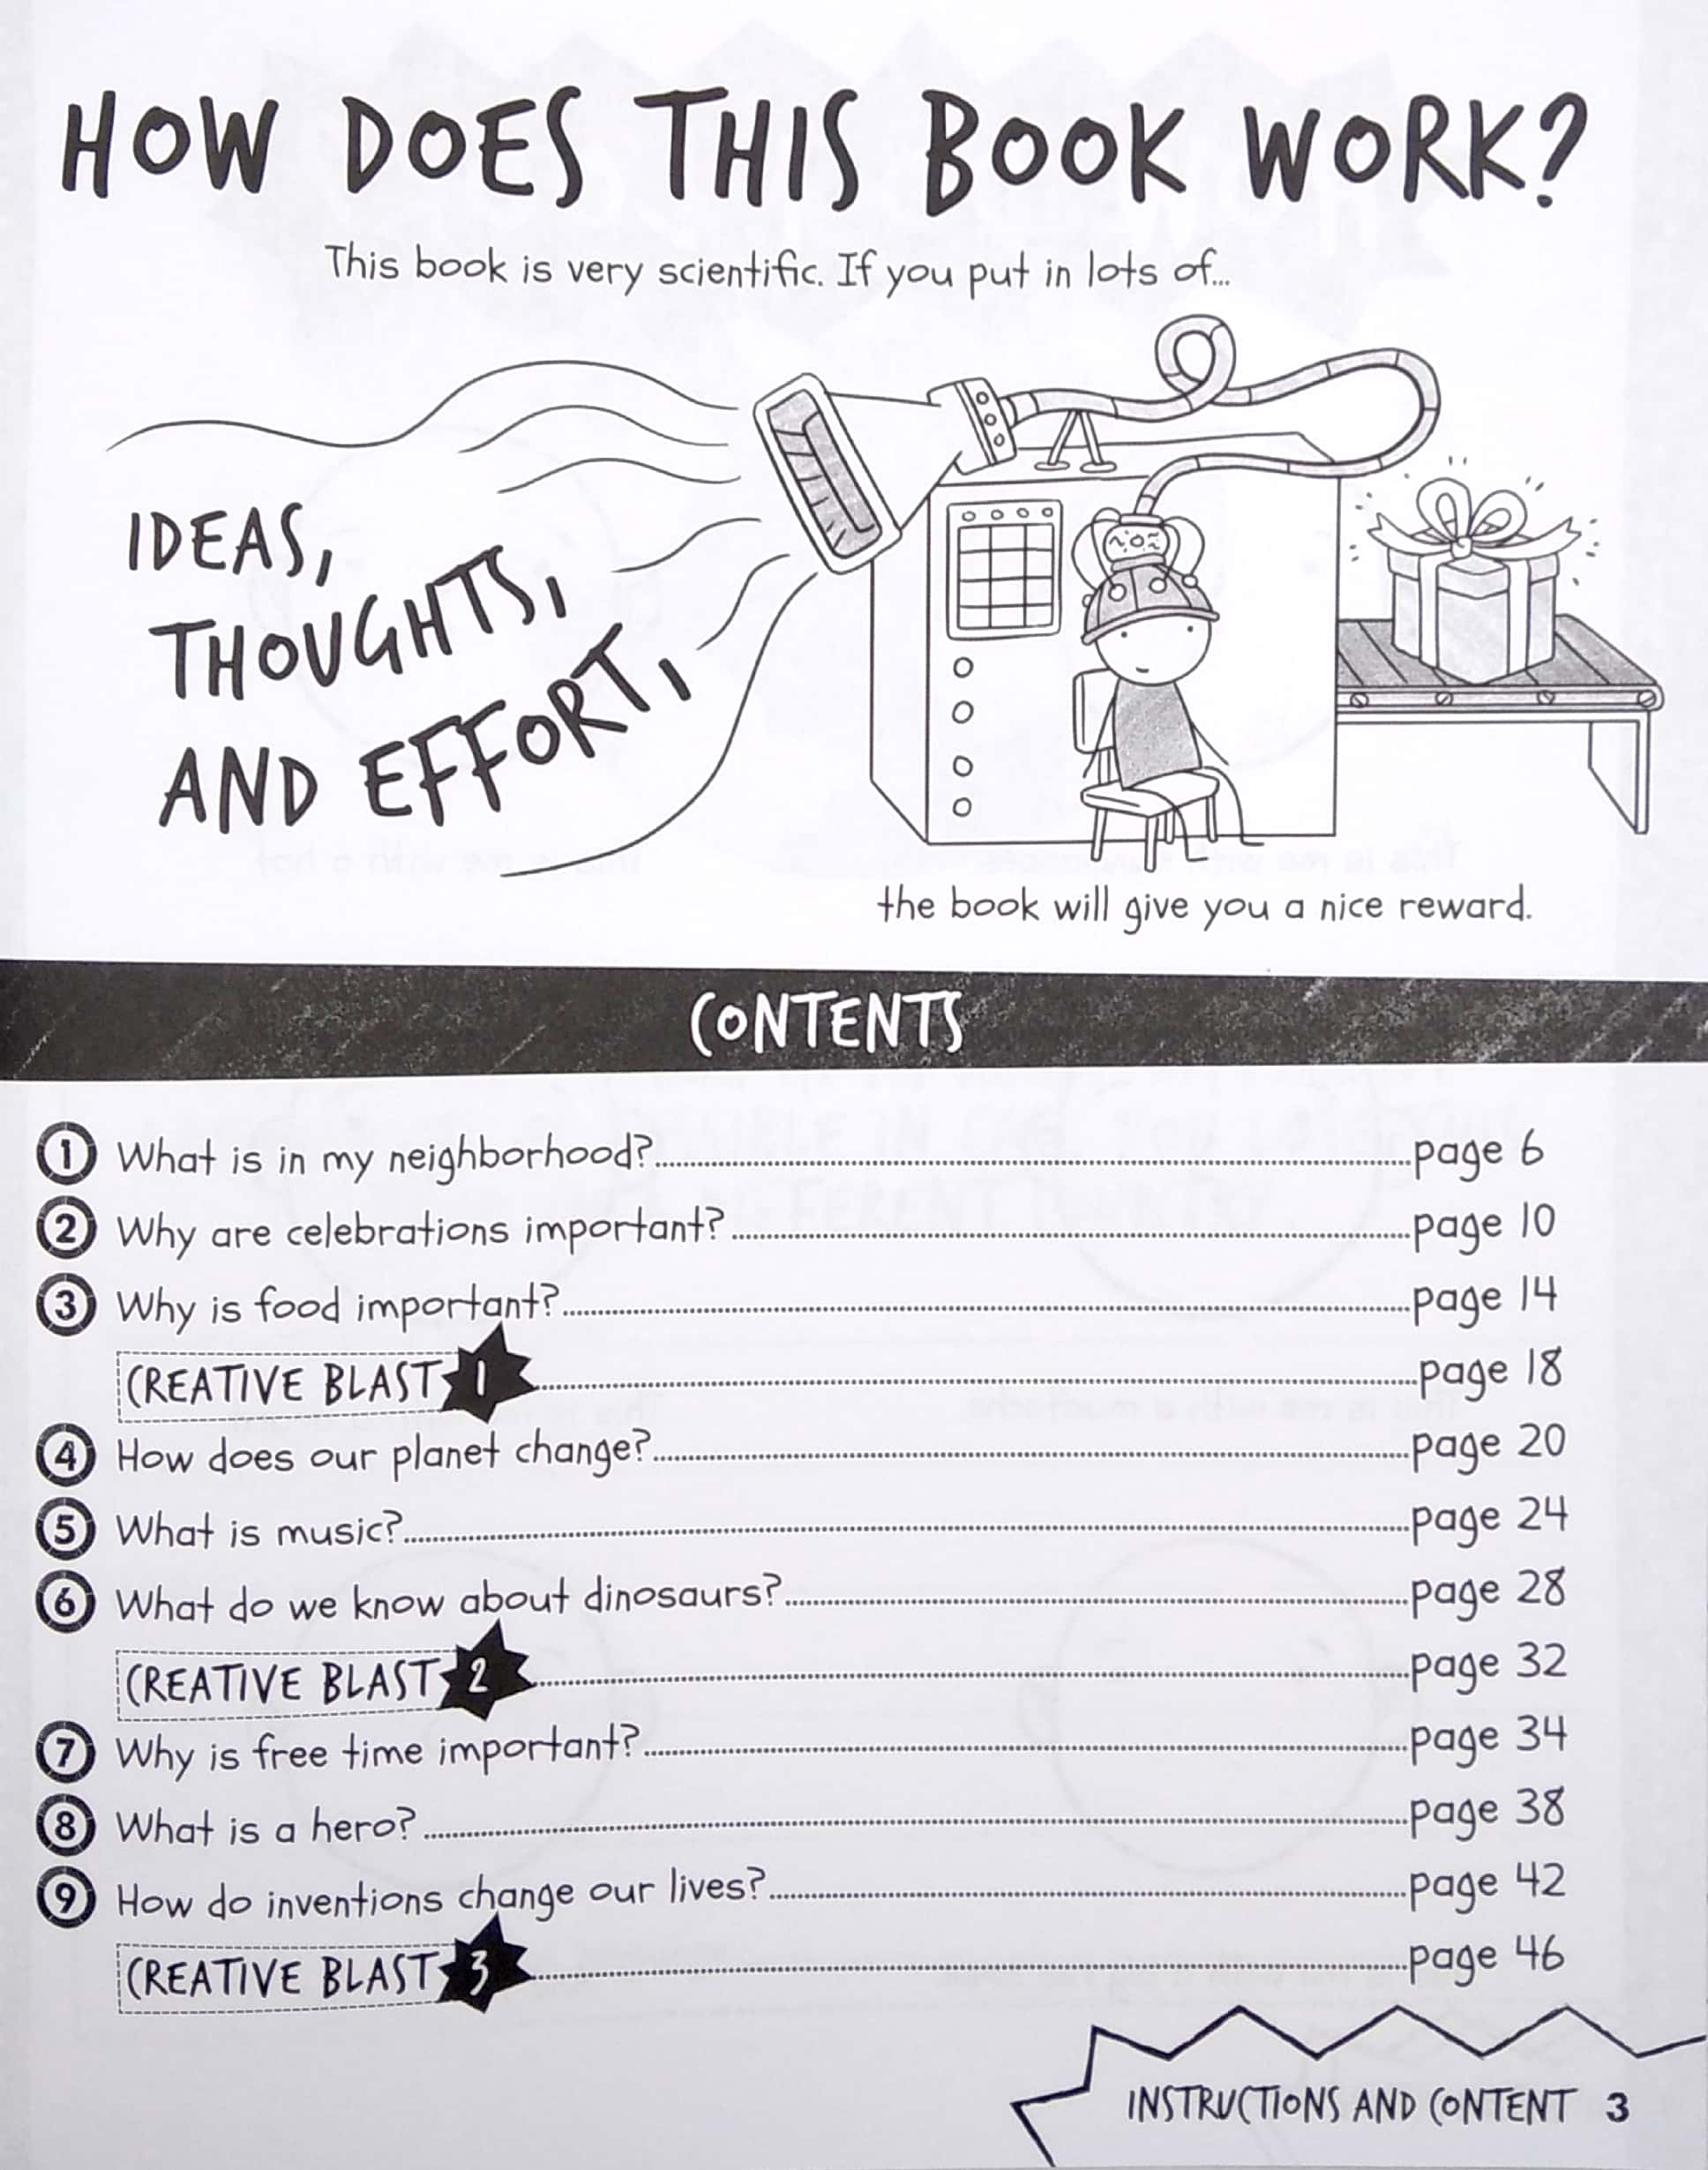 HOW DOES THIS BOOK WORK?
This book is very scientific. If you put in lots of...
IDEAS,
THOUGHTS,
AND EFFORT,
the book will give you a nice reward.
CONTENTS
1 What is in my neighborhood? page 6
2 Why are celebrations important? page 10
3 Why is food important? page 14
CREATIVE BLAST 1 page 18
4 How does our planet change? page 20
5 What is music? page 24
6 What do we know about dinosaurs? page 28
CREATIVE BLAST 2 page 32
7 Why is free time important? page 34
8 What is a hero? page 38
9 How do inventions change our lives? page 42
CREATIVE BLAST 3 page 46
INSTRUCTIONS AND CONTENT 3